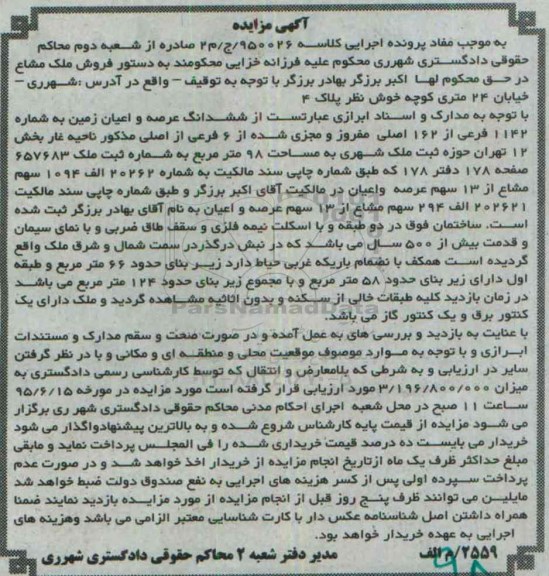 آگهی مزایده
به موجب مفاد پرونده اجرایی کلاسه ۹۵۰۰۲۶/ج/م۲ صادره از شعبه دوم محاکم
حقوقی دادگستری شهرری محکوم علیه فرزانه خزایی محکومند به دستور فروش ملک مشاع
در حق محکوم لها اکبر برزگر بهادر برزگر با توجه به توقیف – واقع در آدرس :شهرری –
خیابان ۲۴ متری کوچه خوش نظر پلاک ۴
با توجه به مدارک و اسناد ابرازی عبارتست از ششدانگ عرصه و اعیان زمین به شماره
۱۱۴۲ فرعی از ۱۶۲ اصلی مفروز و مجزی شده از ۶ فرعی از اصلی مذکور ناحیه غار بخش
۱۲ تهران حوزه ثبت ملک شهری به مساحت ۹۸ متر مربع به شماره ثبت ملک ۶۵۷۶۸۳
صفحه ۱۷۸ دفتر ۱۷۸ که طبق شماره چاپی سند مالکیت به شماره ۲۰۲۶۲ الف ۱۰۹۴ سهم
مشاع از ۱۳ سهم عرصه واعیان در مالکیت آقای اکبر برزگر و طبق شماره چاپی سند مالکیت
۲۰۲۶۲۱ الف ۲۹۴ سهم مشاع از ۱۳ سهم عرصه و اعیان به نام آقای بهادر برزگر ثبت شده
است. ساختمان فوق در دو طبقه و با اسکلت نیمه فلزی و سقف طاق ضربی و با نمای سیمان
و قدمت بیش از ۵۰۰ سال می باشد که در نبش درگذردر سمت شمال و شرق ملک واقع
گردیده است همکف با انضمام باریکه غربی حیاط دارد زیر بنای حدود ۶۶ متر مربع و طبقه
اول دارای زیر بنای حدود ۵۸ متر مربع و با مجموع زیر بنای حدود ۱۲۴ متر مربع می باشد
در زمان بازدید کلیه طبقات خالی از سکنه و بدون اثاثیه مشاهده گردید و ملک دارای یک
کنتور برق و یک کنتور گاز می باشد.
با عنایت به بازدید و بررسی های به عمل آمده و در صورت صحت و سقم مدارک و مستندات
ابرازی و با توجه به موارد موصوف موقعیت محلی و منطقه ای و مکانی و با در نظر گرفتن
سایر در ارزیابی و به شرطی که بلامعارض و انتقال که توسط کارشناسی رسمی دادگستری به
میزان ۳/۱۹۶/۸۰۰/۰۰۰ مورد ارزیابی قرار گرفته است مورد مزایده در مورخه ۹۵/۶/۱۵
ساعت ۱۱ صبح در محل شعبه اجرای احکام مدنی محاکم حقوقی دادگستری شهر ری برگزار
می شود مزایده از قیمت پایه کارشناس شروع شده و به بالاترین پیشنهادواگذار می شود
خریدار می بایست ده درصد قیمت خریداری شده را فی المجلس پرداخت نماید و مابقی
مبلغ حداکثر ظرف یک ماه ازتاریخ انجام مزایده از خریدار اخذ خواهد شد و در صورت عدم
پرداخت سپرده اولی پس از کسر هزینه های اجرایی به نفع صندوق دولت ضبط خواهد شد
مایلین می توانند ظرف پنج روز قبل از انجام مزایده از مورد مزایده بازدید نمایند ضمنا
همراه داشتن اصل شناسنامه عکس دار با کارت شناسایی معتبر الزامی می باشد وهزینه های
اجرایی به عهده خریدار خواهد بود.
۲۵۵۹/م الف مدیر دفتر شعبه ۲ محاکم حقوقی دادگستری شهرری
ParsNamadData